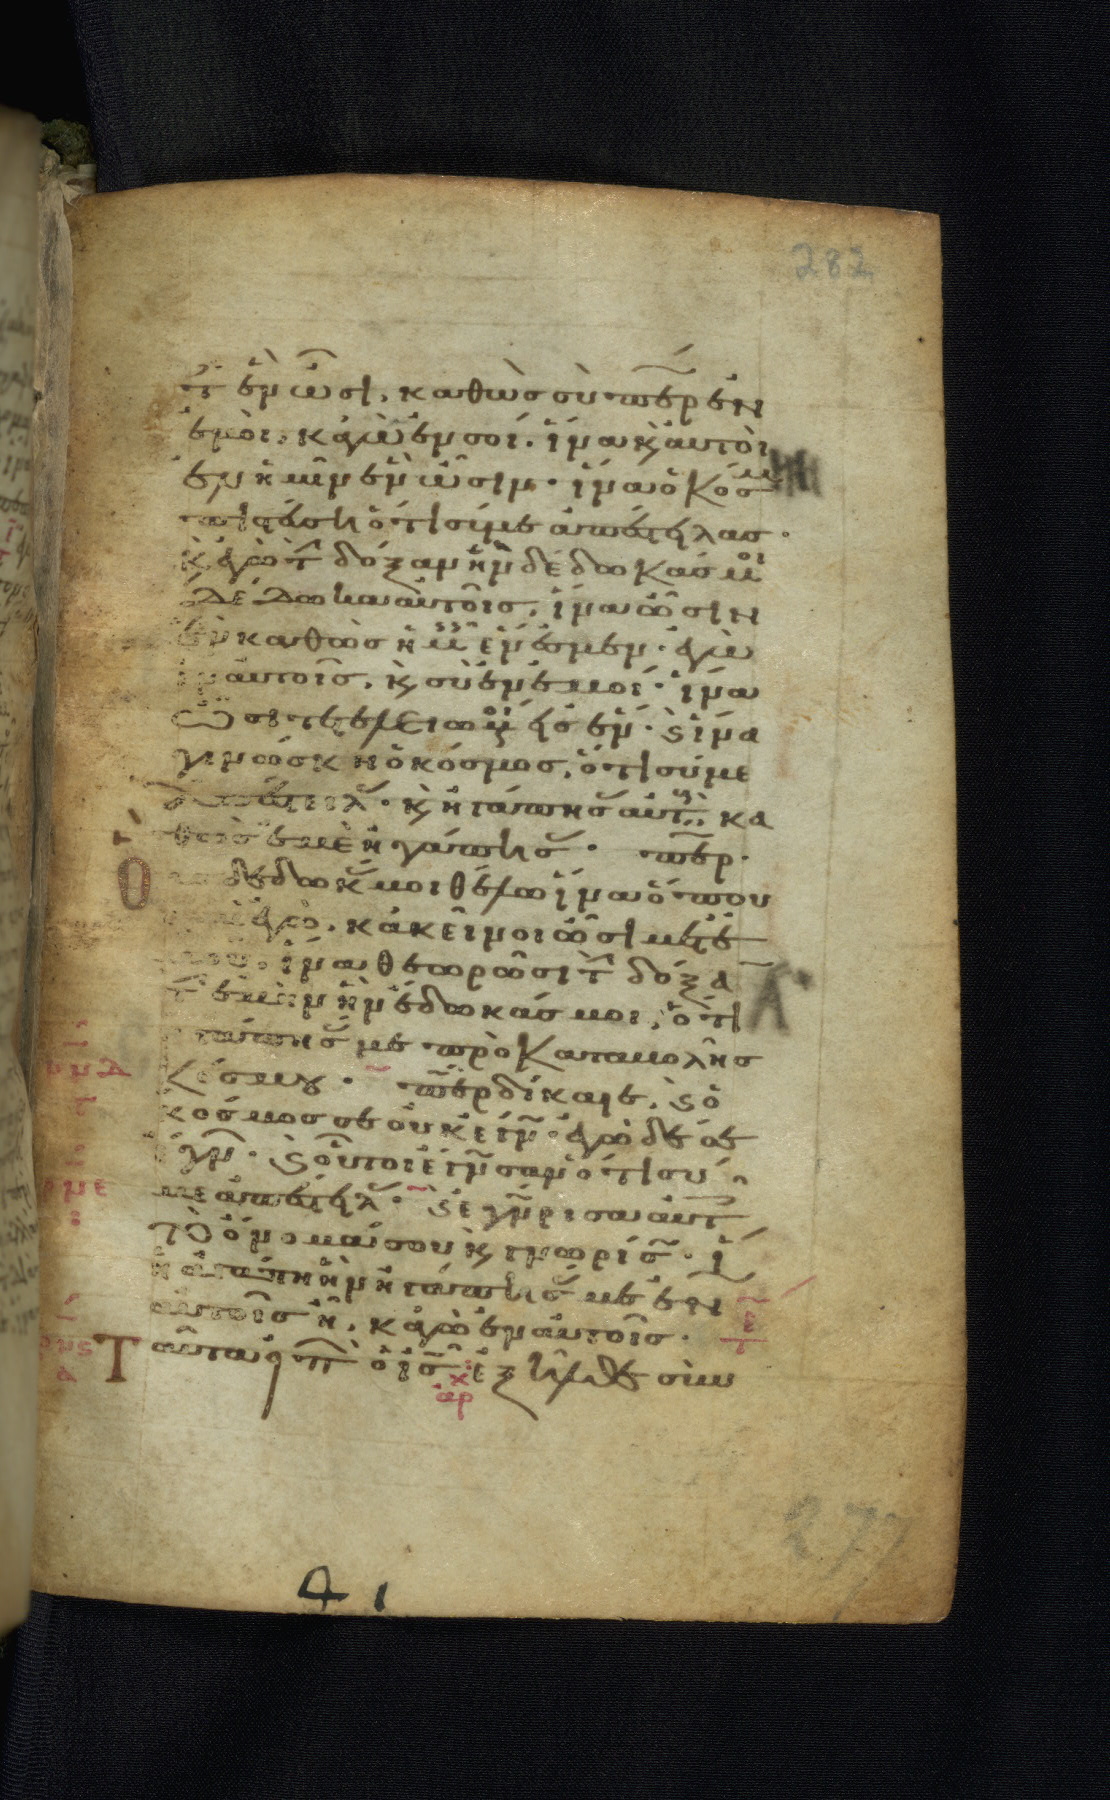 282
τ ἓν ὦσι. καθὼς σὺ περ ἐν
ἐμοὶ. κἀγὼ ἐν σοί. ἵνα κ αὐτοὶ
ἐν ἡμῖν ἓν ὦσιν. ἵνα ὁ κόσμ
πιστεύση ὅτι σύ με ἀπέστειλας.
κἀγὼ τ δόξαν ἣν δέδωκάς μοι
δέδωκα αὐτοῖς. ἵνα ὦσιν
ἓν καθὼς ἡμ ἕν ἐσμεν. ἐγὼ
ἐν αὐτοῖς. κ σὺ ἐν ἐμοί. ἵνα
ὦσι τετελειωμ εἰς ἕν. κ ἵνα
γινώσκη ὁ κόσμος, ὅτι σύ με
ἀπέστειλ. κ ἠγάπησ αὐτ κα
θὼς ἐμὲ ἠγάπησ. περ.
Ο δέδωκ μοι θέλω ἵνα ὅπου
εἰμὶ ἐγὼ. κἀκεῖνοι ὦσι μετ ἐ
μοῦ. ἵνα θεωρῶσι τ δόξα
τ ἐμὴν ἣν ἔδωκάς μοι, ὅτι
ἠγάπησ με πρὸ καταβολῆς
κόσμου. περ δίκαιε, κ ὁ
κόσμος σε οὐκ ἔγν. ἐγὼ δέ σε
ἔγν. κ οὗτοι ἔγνωσαν ὅτι σύ
με ἀπέστειλ. κ ἐγνώρισα αὐτ
τὸ ὄνομά σου κ γνωρίσ. ἵ
ἡ ἀγάπη ἣν ἠγάπησ με ἐν
αὐτοῖς ἦ. κἀγὼ ἐν αὐτοῖς.
Ταῦτα εἰπ ὁ ις ἐξῆλθε σὺν
αρχ
277
41